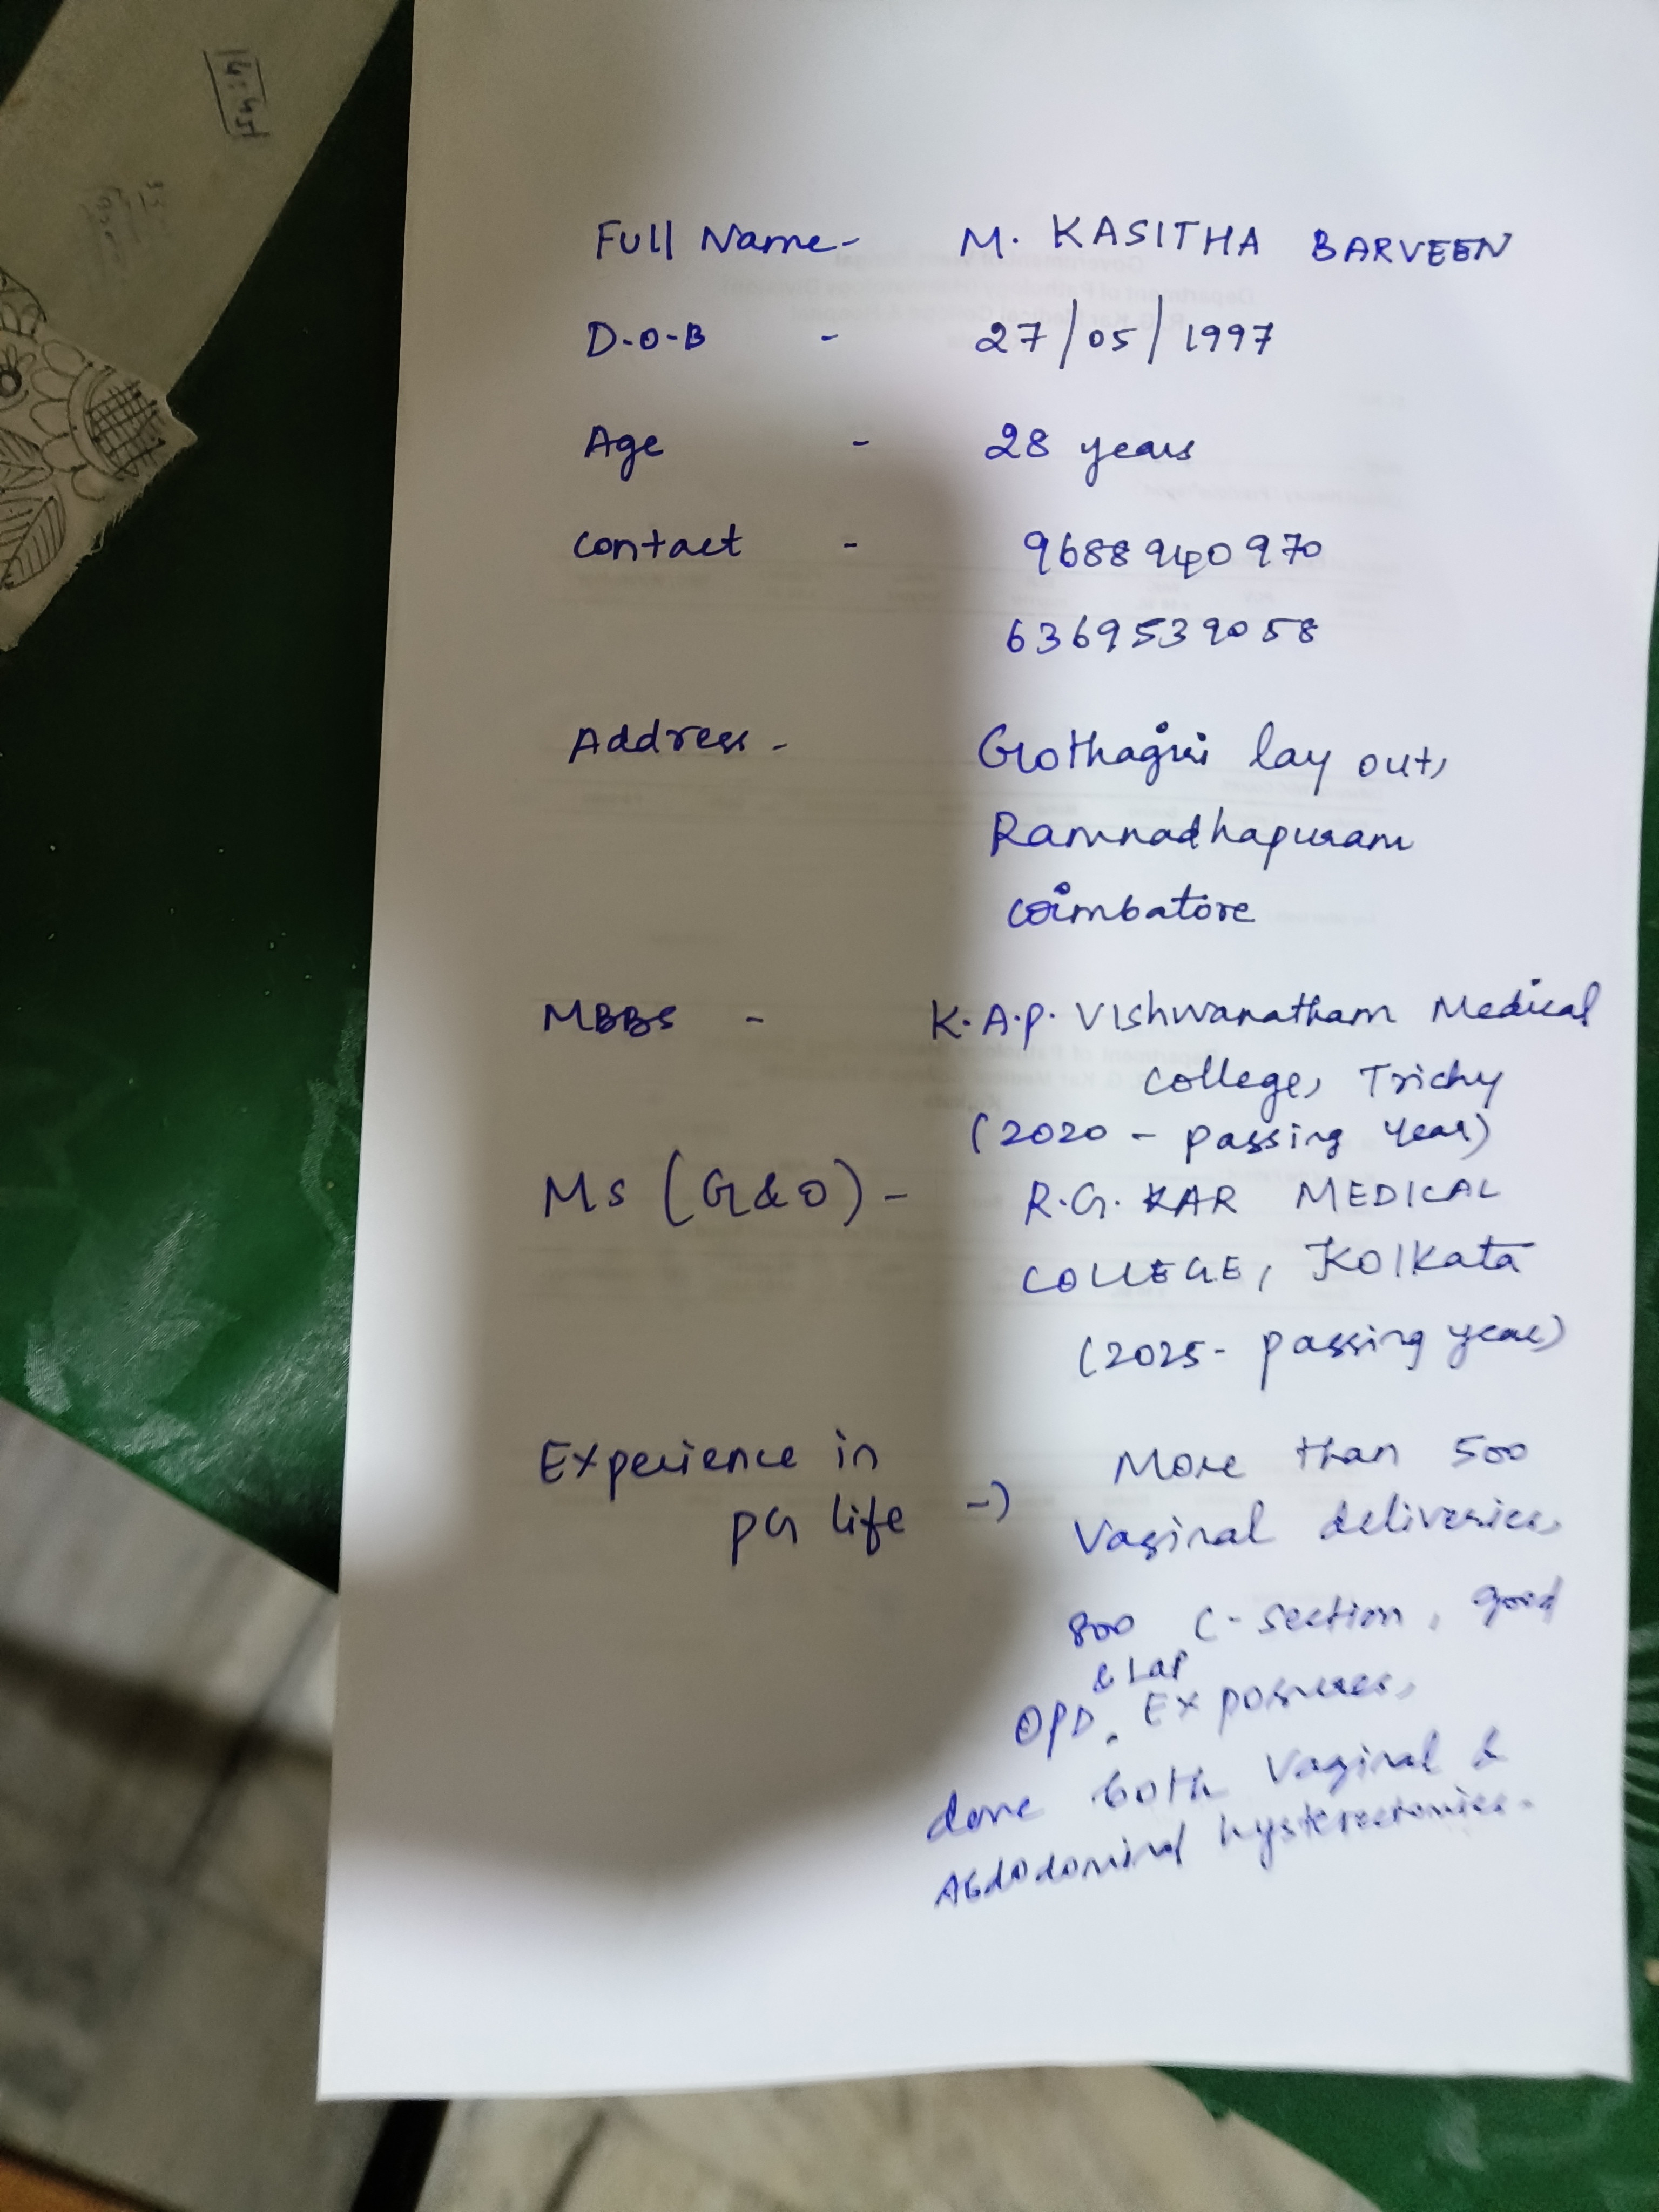 14:45
Full Name - M. KASITHA BARVEEN
D.O.B - 27/05/1997
Age - 28 years
Contact - 9688940970
6369539058
Address - Gothagiri lay out,
Ramnadhapuram
Coimbatore
MBBS - K.A.P. Vishwanatham Medical
College, Trichy
(2020 - passing year)
MS (G&O) - R.G. KAR MEDICAL
COLLEGE, Kolkata
(2025 - passing year)
Experience in More than 500
PG life -> Vaginal deliveries,
800 C-section, good
& Lap
OPD. Exposures,
done both Vaginal &
Abdodominal hysterectomies.